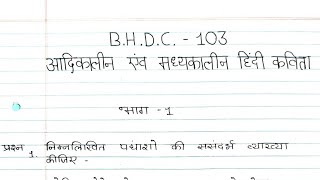 B.H.D.C. - 103
आदिकालीन एंव मध्यकालीन हिंदी कविता
भाग - 1
प्रश्न 1. निम्नलिखित पद्यांशों की ससंदर्भ व्याख्या
कीजिए -